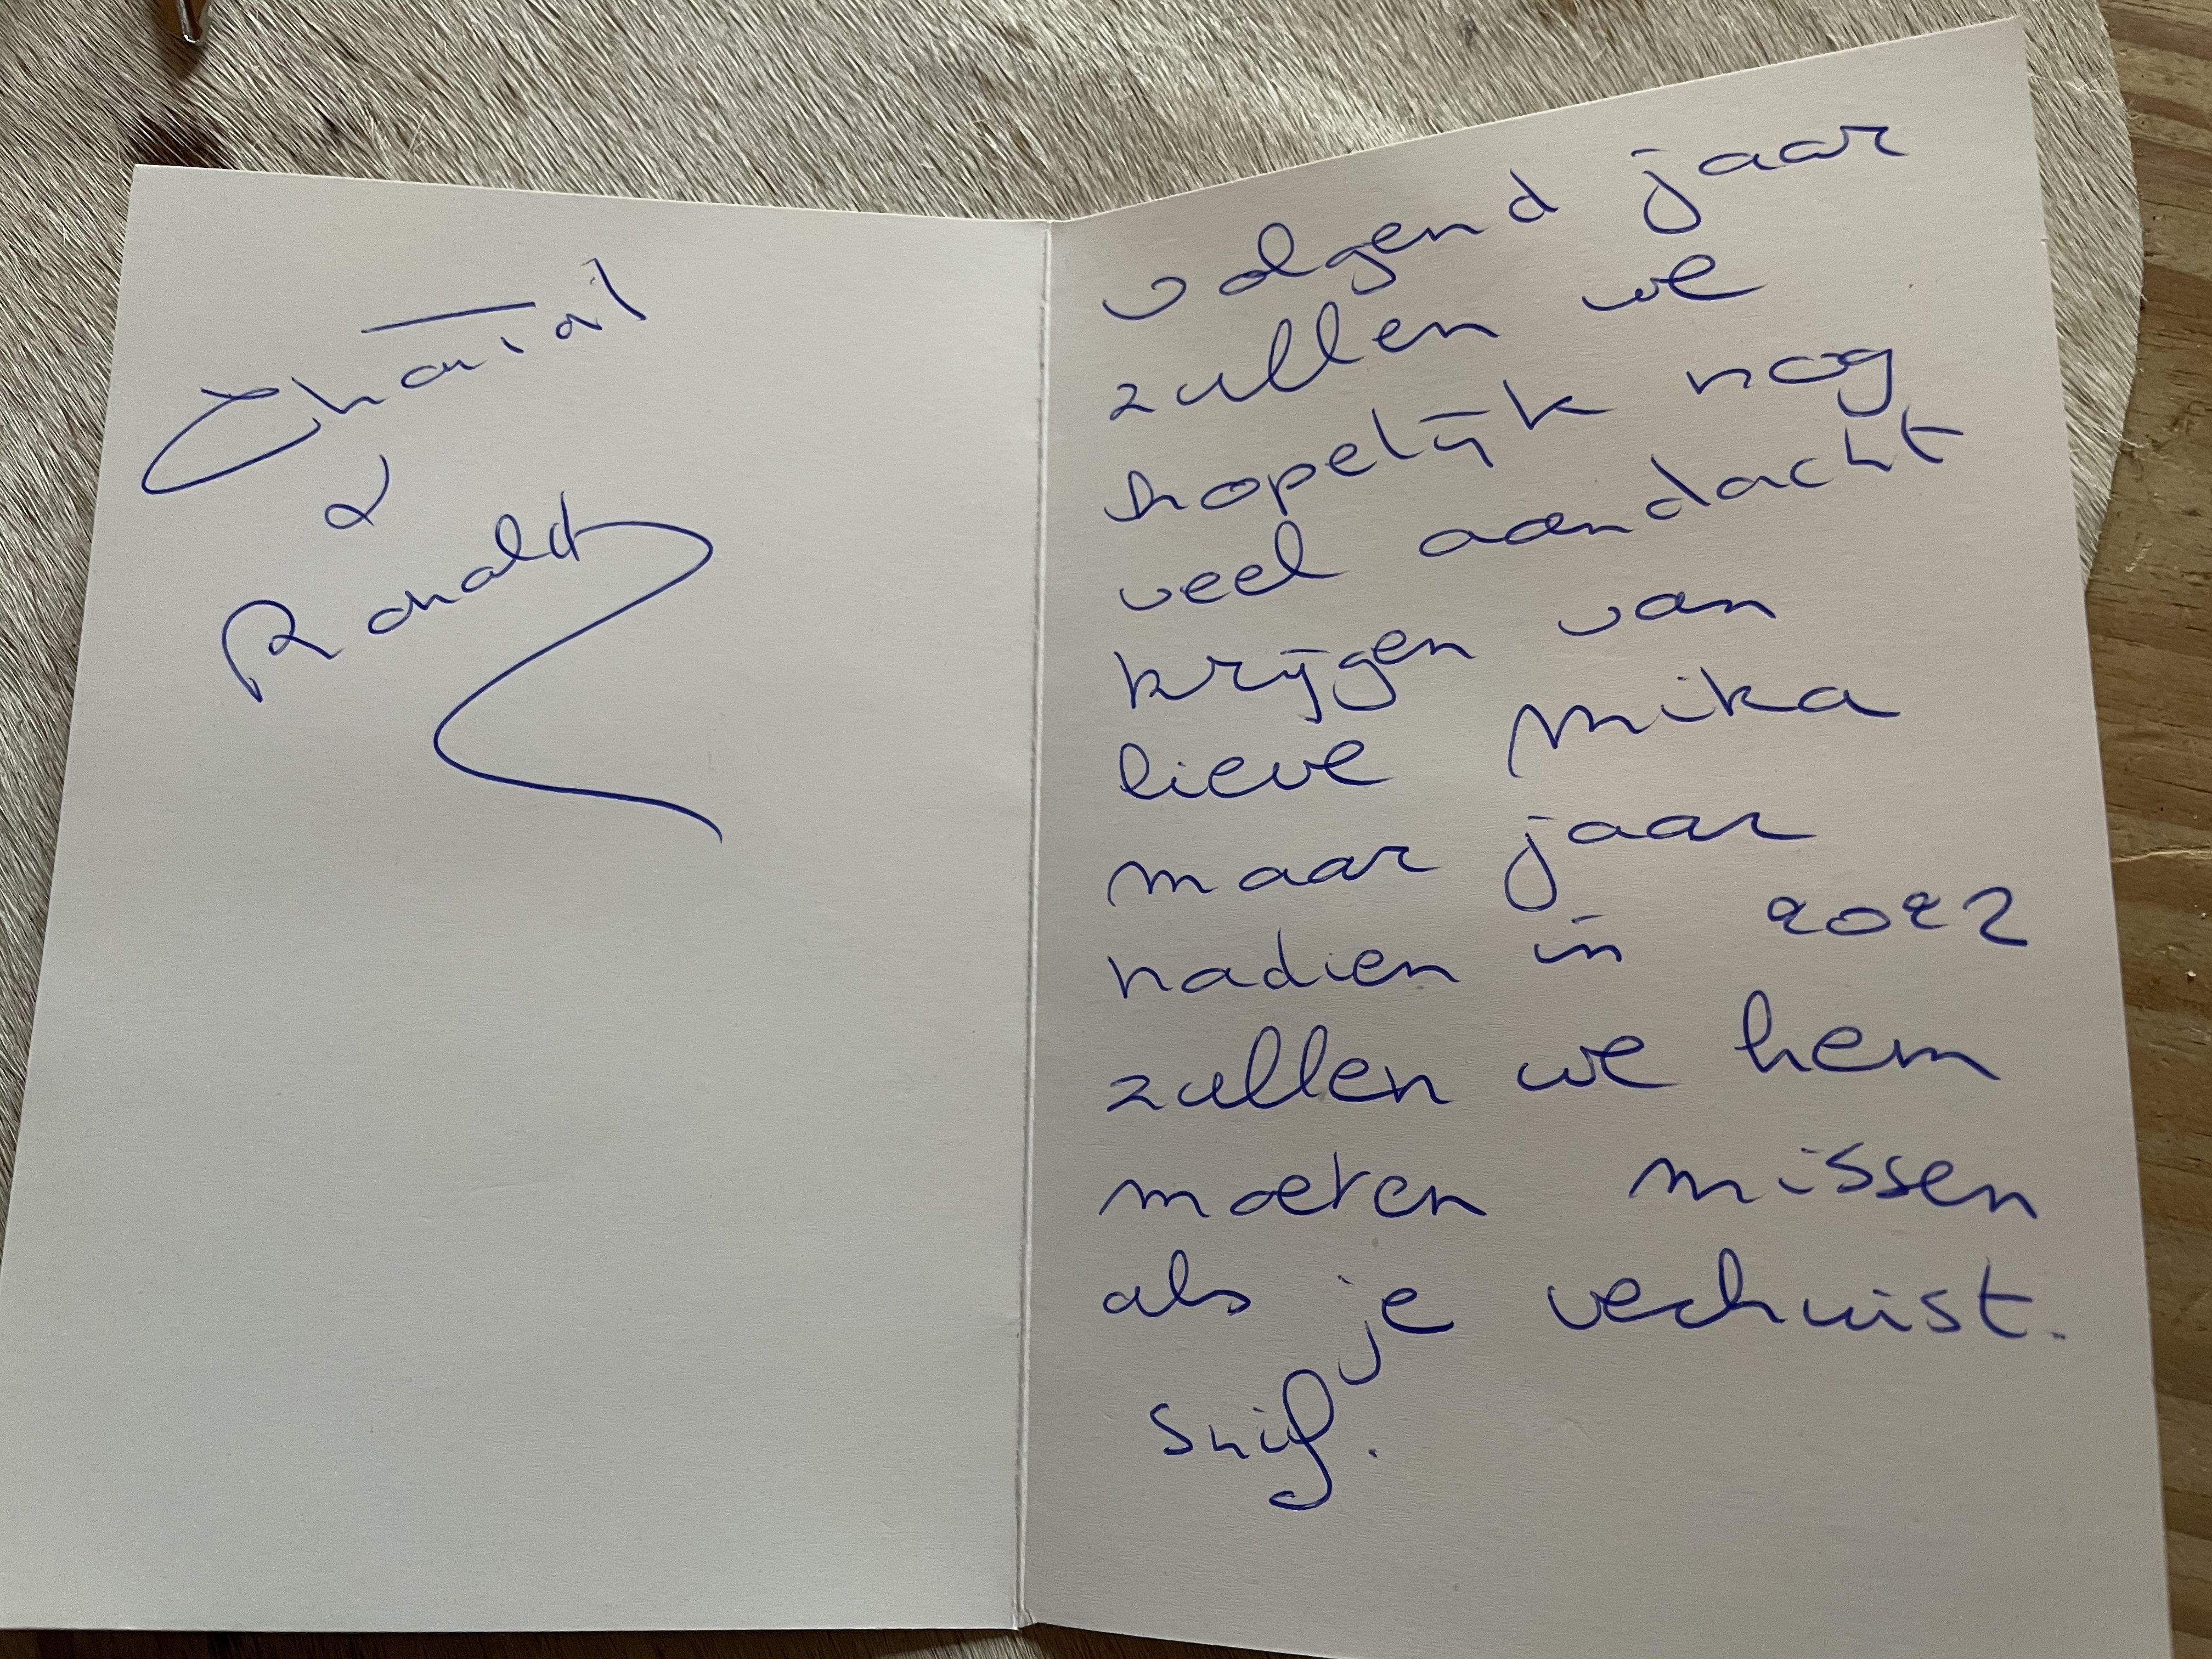 Chantal
&
Ronald
volgend jaar
zullen we
hopelijk nog
veel aandacht
krijgen van
lieve Mika
maar jaar
nadien in 2022
zullen we hem
moeten missen
als je verhuist.
snif.